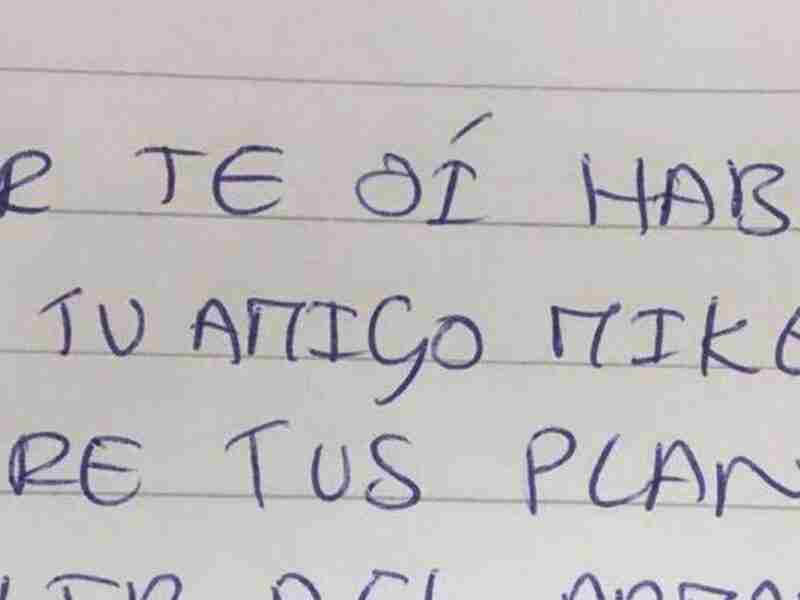 R TE OÍ HAB
TU AMIGO MIKE
RE TUS PLAN
DEL